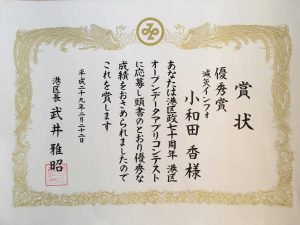 賞状
優秀賞
減災インフォ
小和田 香様
あなたは港区政七十周年 港区
オープンデータアプリコンテスト
に応募し頭書のとおり優秀な
成績をおさめられましたので
これを賞します
平成二十九年三月二十二日
港区長 武井雅昭